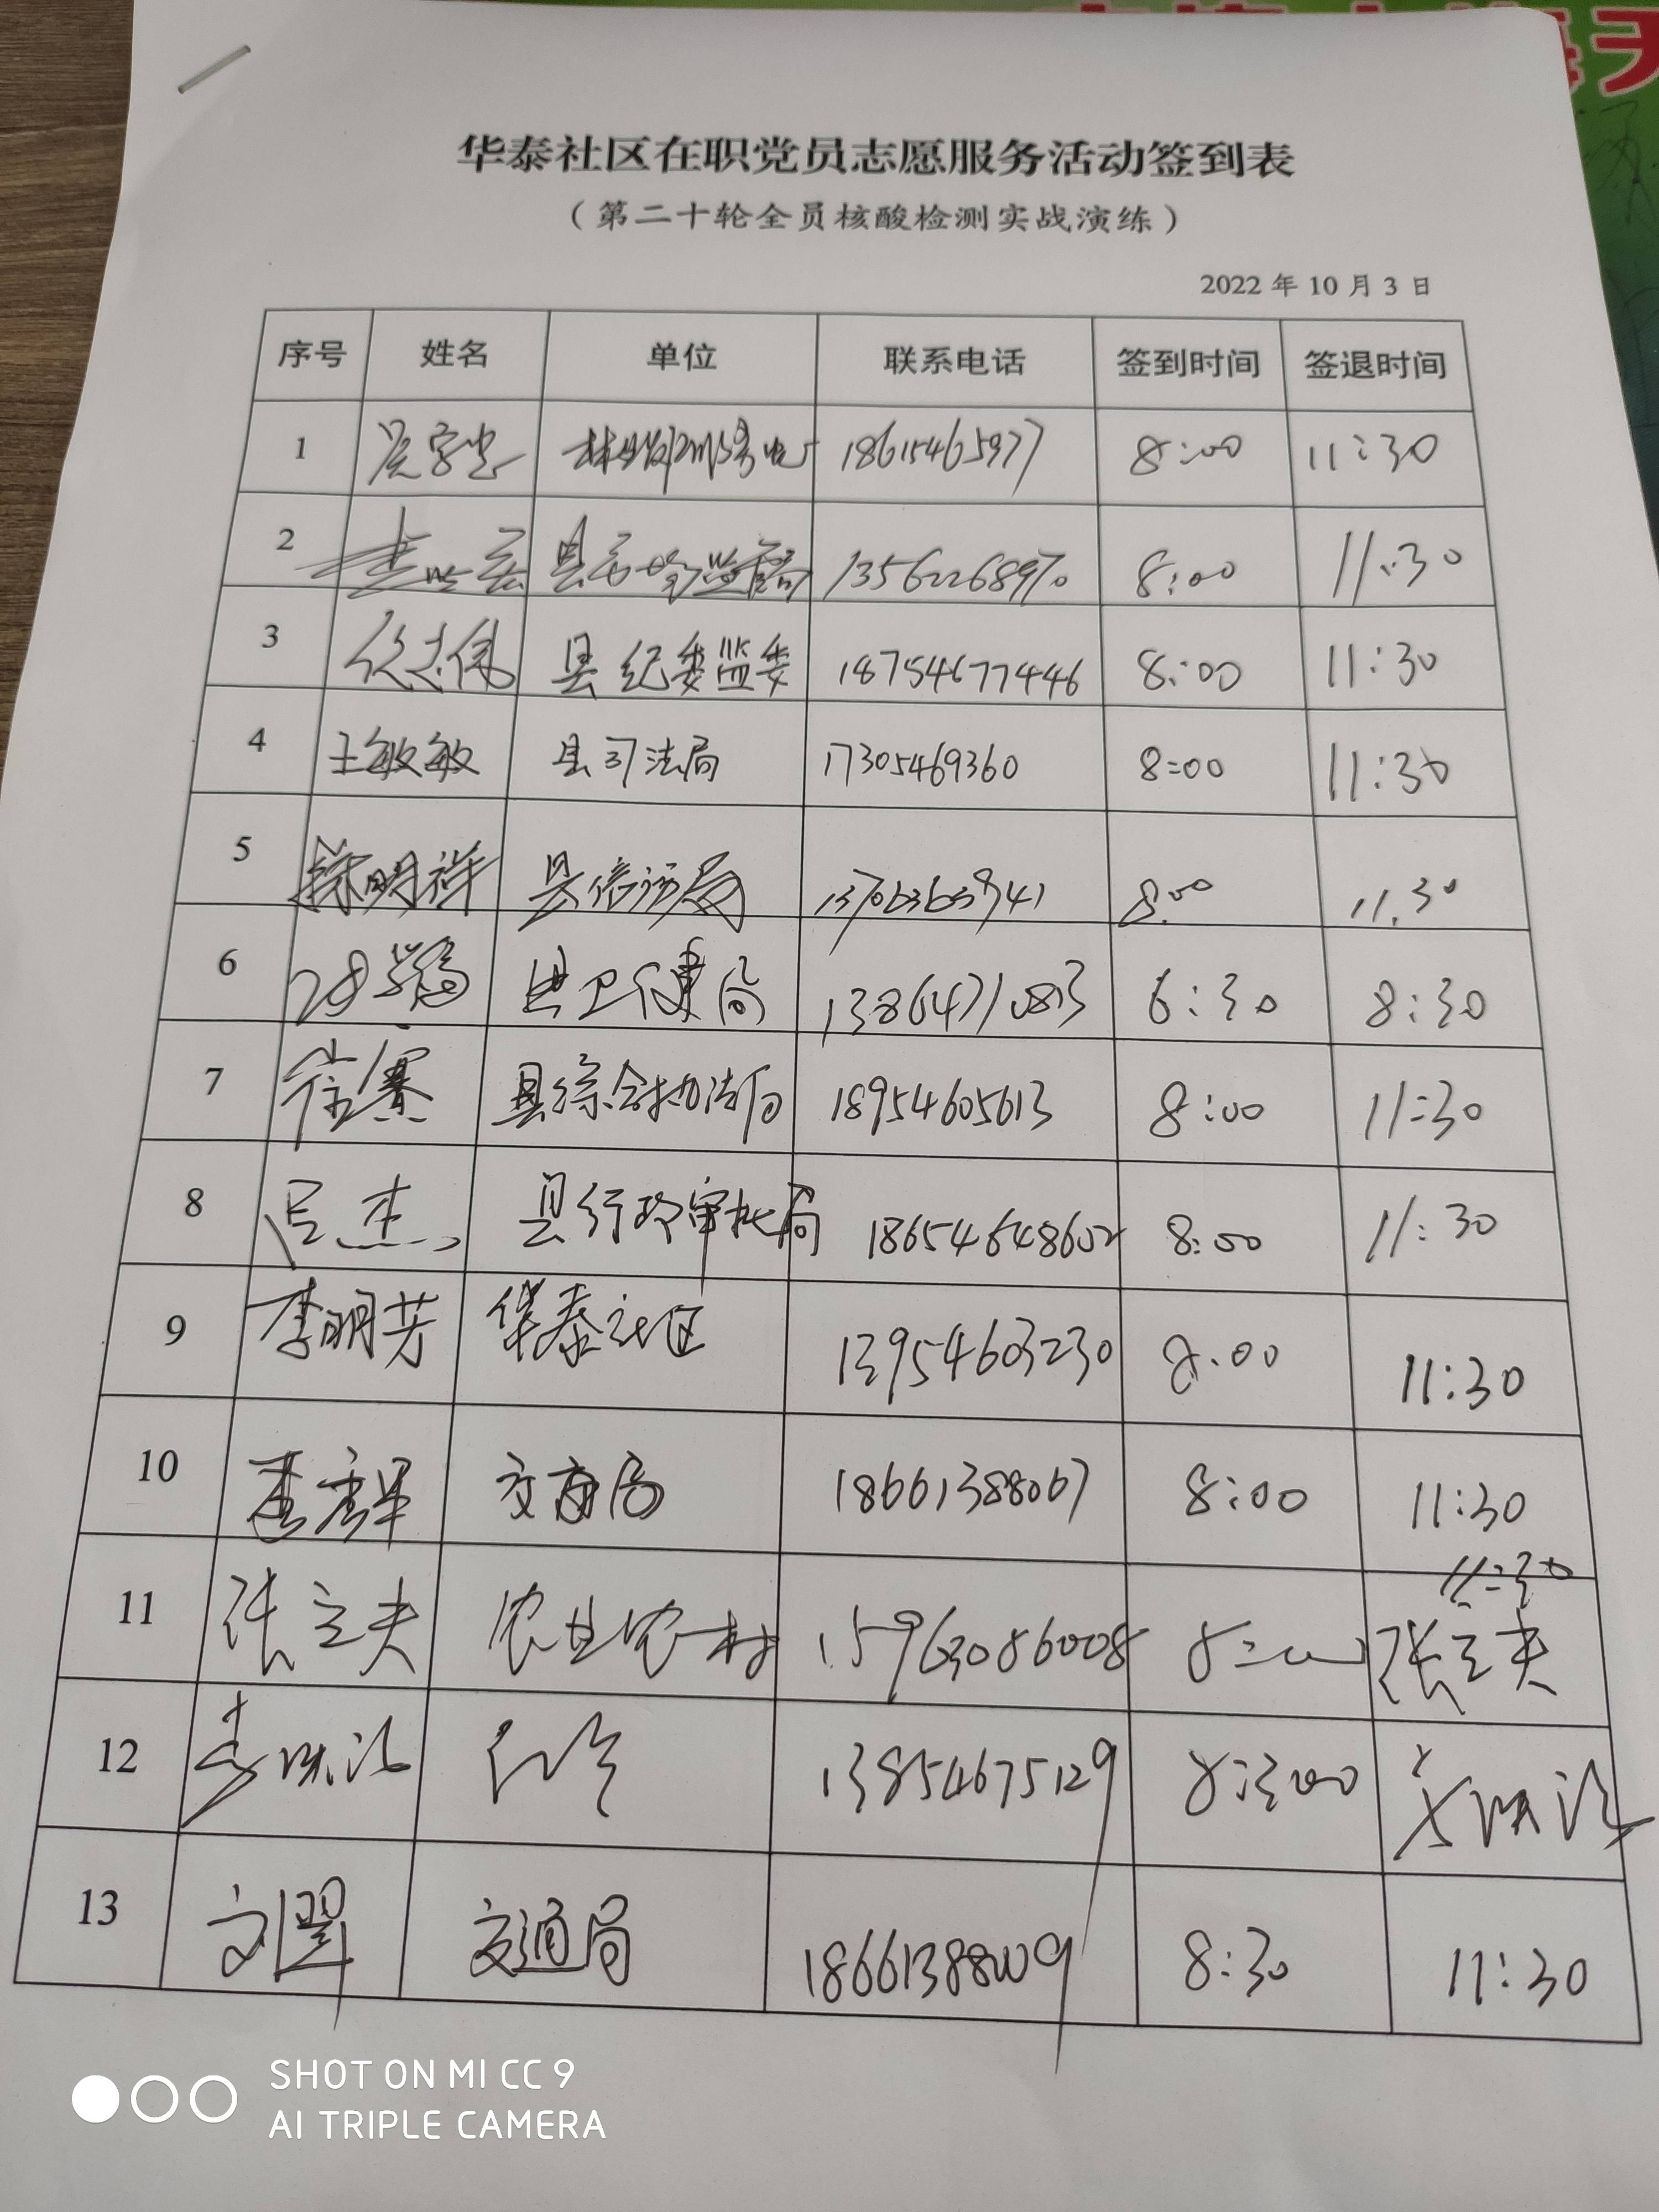 华泰社区在职党员志愿服务活动签到表
（第二十轮全员核酸检测实战演练）
2022 年 10 月 3 日
序号 姓名 单位 联系电话 签到时间 签退时间
1 18615465977 8:00 11:30
2 13562268970 8:00 11:30
3 县纪委监委 18754677446 8:00 11:30
4 王敏敏 县司法局 17305469360 8:00 11:30
5 徐明祥 县信访局 8:00 11.30
6 县卫健局 13864710813 6:30 8:30
7 徐骞 18954605613 8:00 11:30
8 吕杰 县行政审批局 18654648602 8:00 11:30
9 李明芳 华泰社区 13954603230 8.00 11:30
10 18661388067 8:00 11:30
11:30
11 张立夫 农业农村 15963086008 8:00 张立夫
12 13854675129
13 交通局 18661388009 8:30 11:30
SHOT ON MI CC 9
AI TRIPLE CAMERA